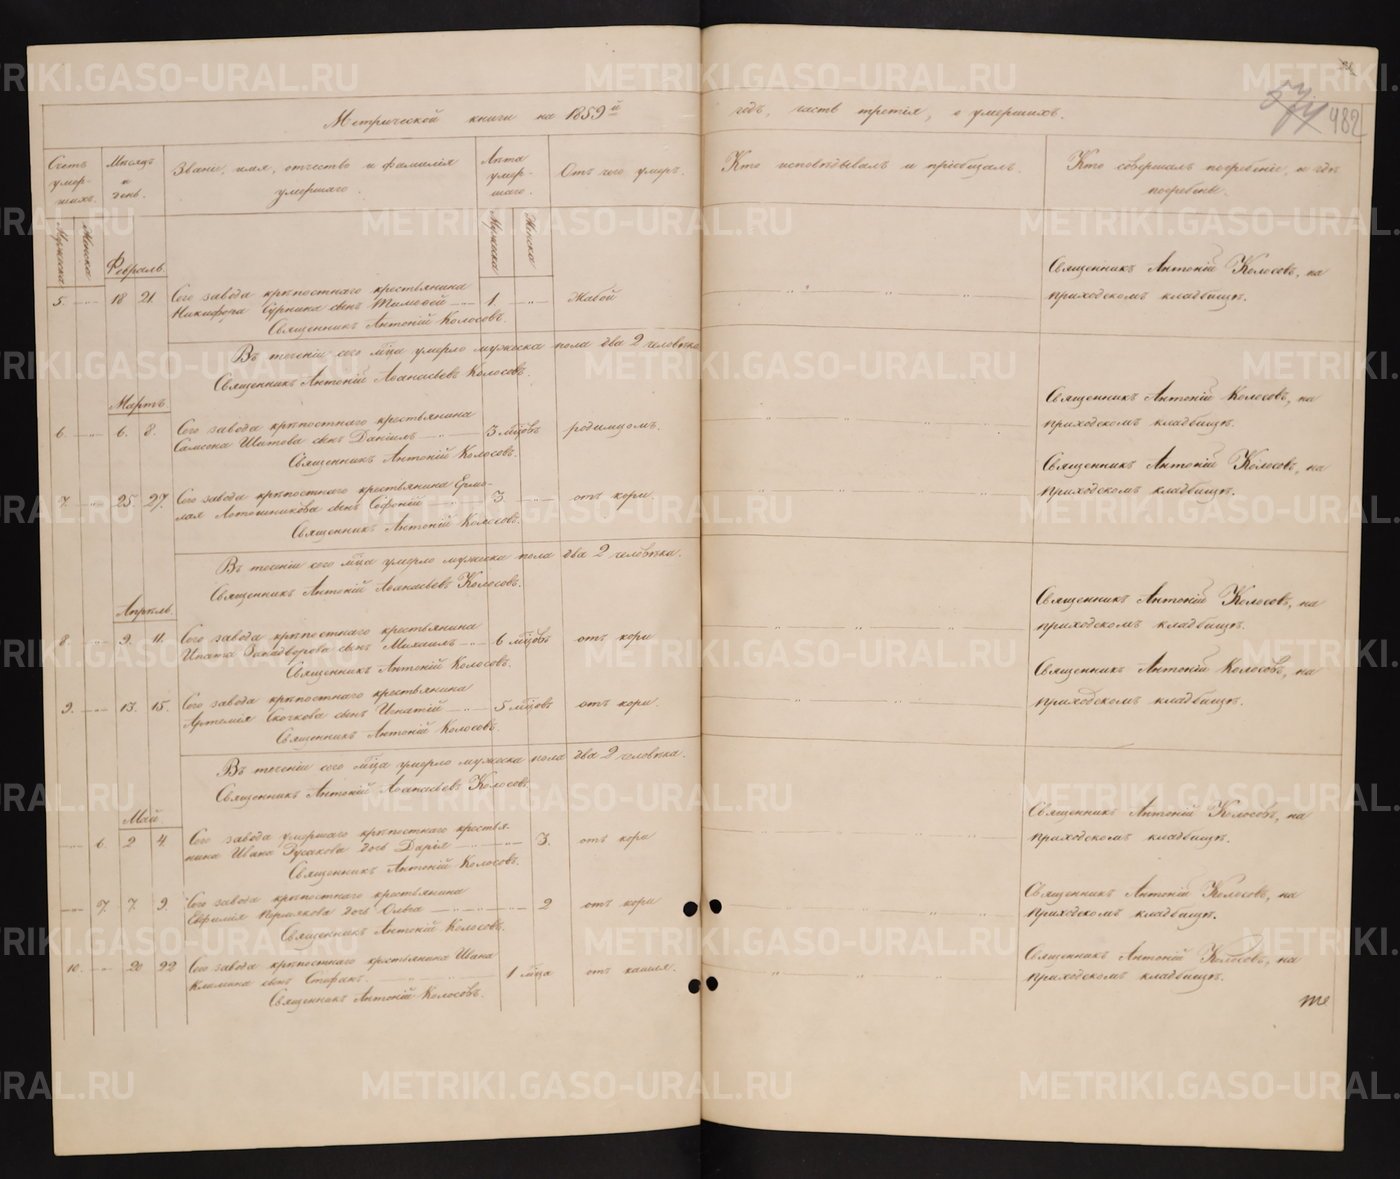 Метрической книги на 1859й
годъ, часть третія, о умершихъ.
482
Счетъ умер-шихъ.
Мужеска
Женска
Мѣсяцъ и день.
Званіе, имя, отчество и фамилія умершаго.
Лѣта умер-шаго.
Мужеска
Женска
Отъ чего умеръ.
Кто исповѣдывалъ и пріобщалъ.
Кто совершалъ погребеніе, и гдѣ погребены.
Февраль.
5. 18 21 Сего завода крѣпостнаго крестьянина
Никифора Бурнина сынъ Тимоѳей 1. Жабой
Священникъ Антоній Колосовъ.
Священникъ Антоній Колосовъ, на
приходскомъ кладбищѣ.
Въ теченіи сего мѣца умерло мужеска пола два 2 человѣка.
Священникъ Антоній Аѳанасьевъ Колосовъ.
Мартъ.
6. 6. 8. Сего завода крѣпостнаго крестьянина
Самсона Шитова сынъ Даніилъ 3 мѣцовъ родимцомъ.
Священникъ Антоній Колосовъ.
Священникъ Антоній Колосовъ, на
приходскомъ кладбищѣ.
7. 25. 27. Сего завода крѣпостнаго крестьянина Ермо-
лая сынъ Софоній 3 отъ кори.
Священникъ Антоній Колосовъ.
Священникъ Антоній Колосовъ, на
приходскомъ кладбищѣ.
Въ теченіи сего мѣца умерло мужеска пола два 2 человѣка.
Священникъ Антоній Аѳанасьевъ Колосовъ.
Апрѣль.
8. 9. 11. Сего завода крѣпостнаго крестьянина
Ипата сынъ Михаилъ 6 мѣцовъ отъ кори
Священникъ Антоній Колосовъ.
Священникъ Антоній Колосовъ, на
приходскомъ кладбищѣ.
9. 13. 15. Сего завода крѣпостнаго крестьянина
Артемія Скочкова сынъ Игнатій 5 мѣцовъ отъ кори.
Священникъ Антоній Колосовъ.
Священникъ Антоній Колосовъ, на
приходскомъ кладбищѣ.
Въ теченіи сего мѣца умерло мужеска пола два 2 человѣка.
Священникъ Антоній Аѳанасьевъ Колосовъ.
Май
6. 2 4. Сего завода умершаго крѣпостнаго крестья-
нина Ивана Русакова дочь Дарія 3. отъ кори
Священникъ Антоній Колосовъ.
Священникъ Антоній Колосовъ, на
приходскомъ кладбищѣ.
7. 7 9. Сего завода крѣпостнаго крестьянина
Евфимія Пермякова дочь Ольга 2 отъ кори
Священникъ Антоній Колосовъ.
Священникъ Антоній Колосовъ, на
приходскомъ кладбищѣ.
10. 20 22 Сего завода крѣпостнаго крестьянина Ивана
Климина сынъ Стефанъ. 1 мѣца отъ кашля.
Священникъ Антоній Колосовъ.
Священникъ Антоній Колосовъ, на
приходскомъ кладбищѣ.
METRIKI.GASO-URAL.RU